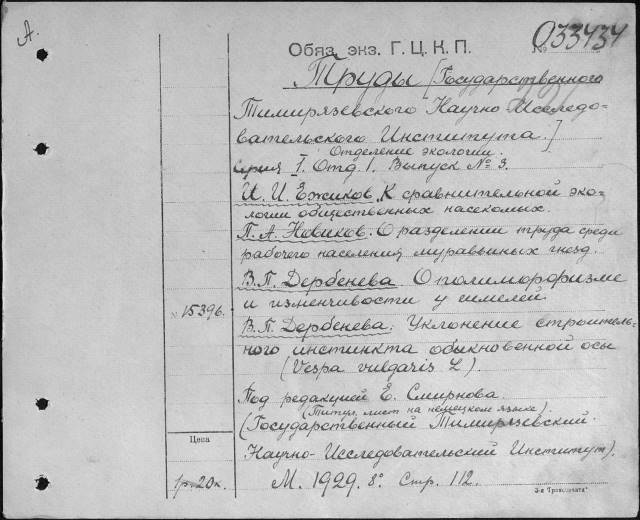 А.
Обяз. экз. Г. Ц. К. П. № 033434
Труды [Государственного
Тимирязевского Научно-Исследо-
вательского Института.]
Отделение экологии.
Серия I. Отд. 1. Выпуск № 3.
И. И. Ежиков. К сравнительной эко-
логии общественных насекомых.
П. А. Новиков. О разделении труда среди
рабочего населения муравьиных гнезд.
В. П. Дербенева. О полиморфизме
и изменчивости у шмелей.
№ 15396.
В. П. Дербенева. Уклонение строитель-
ного инстинкта обыкновенной осы
(Vespa vulgaris L).
Под редакцией Е. Смирнова.
(Титул. лист на немецком языке).
(Государственный Тимирязевский
Научно-Исследовательский Институт).
Цена
1р. 20к.
М. 1929. 8°. Стр. 112.